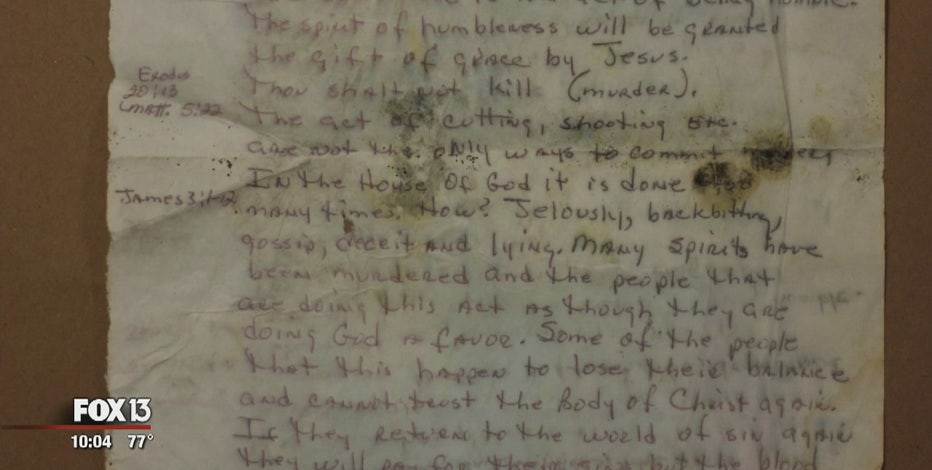 act of being humble.
The spirit of humbleness will be granted
the gift of grace by Jesus.
Exodus
20:13
Matt. 5:22
Thou shalt not kill (murder).
The act of cutting, shooting etc.
are not the only ways to commit
James 3:1-12
In the House Of God it is done
many times. How? Jelously, backbitting,
gossip, deceit and lying. Many spirits have
been murdered and the people that
are doing this act as though they are
doing God a favor. Some of the people
that this happen to lose their balance
and cannot trust the Body of Christ again.
If they return to the world of sin again
they will pay for their sins but the blood
FOX 13
10:04 77°